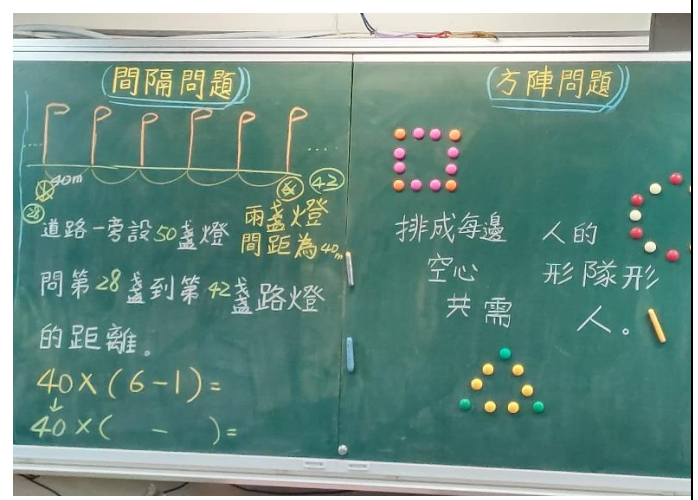 間隔問題
40m
28
42
道路一旁設50盞燈
兩盞燈
間距為40m
問第28盞到第42盞路燈
的距離。
40×(6-1)=
40×( - )=
方陣問題
排成每邊 人的
空心 形隊形
共需 人。